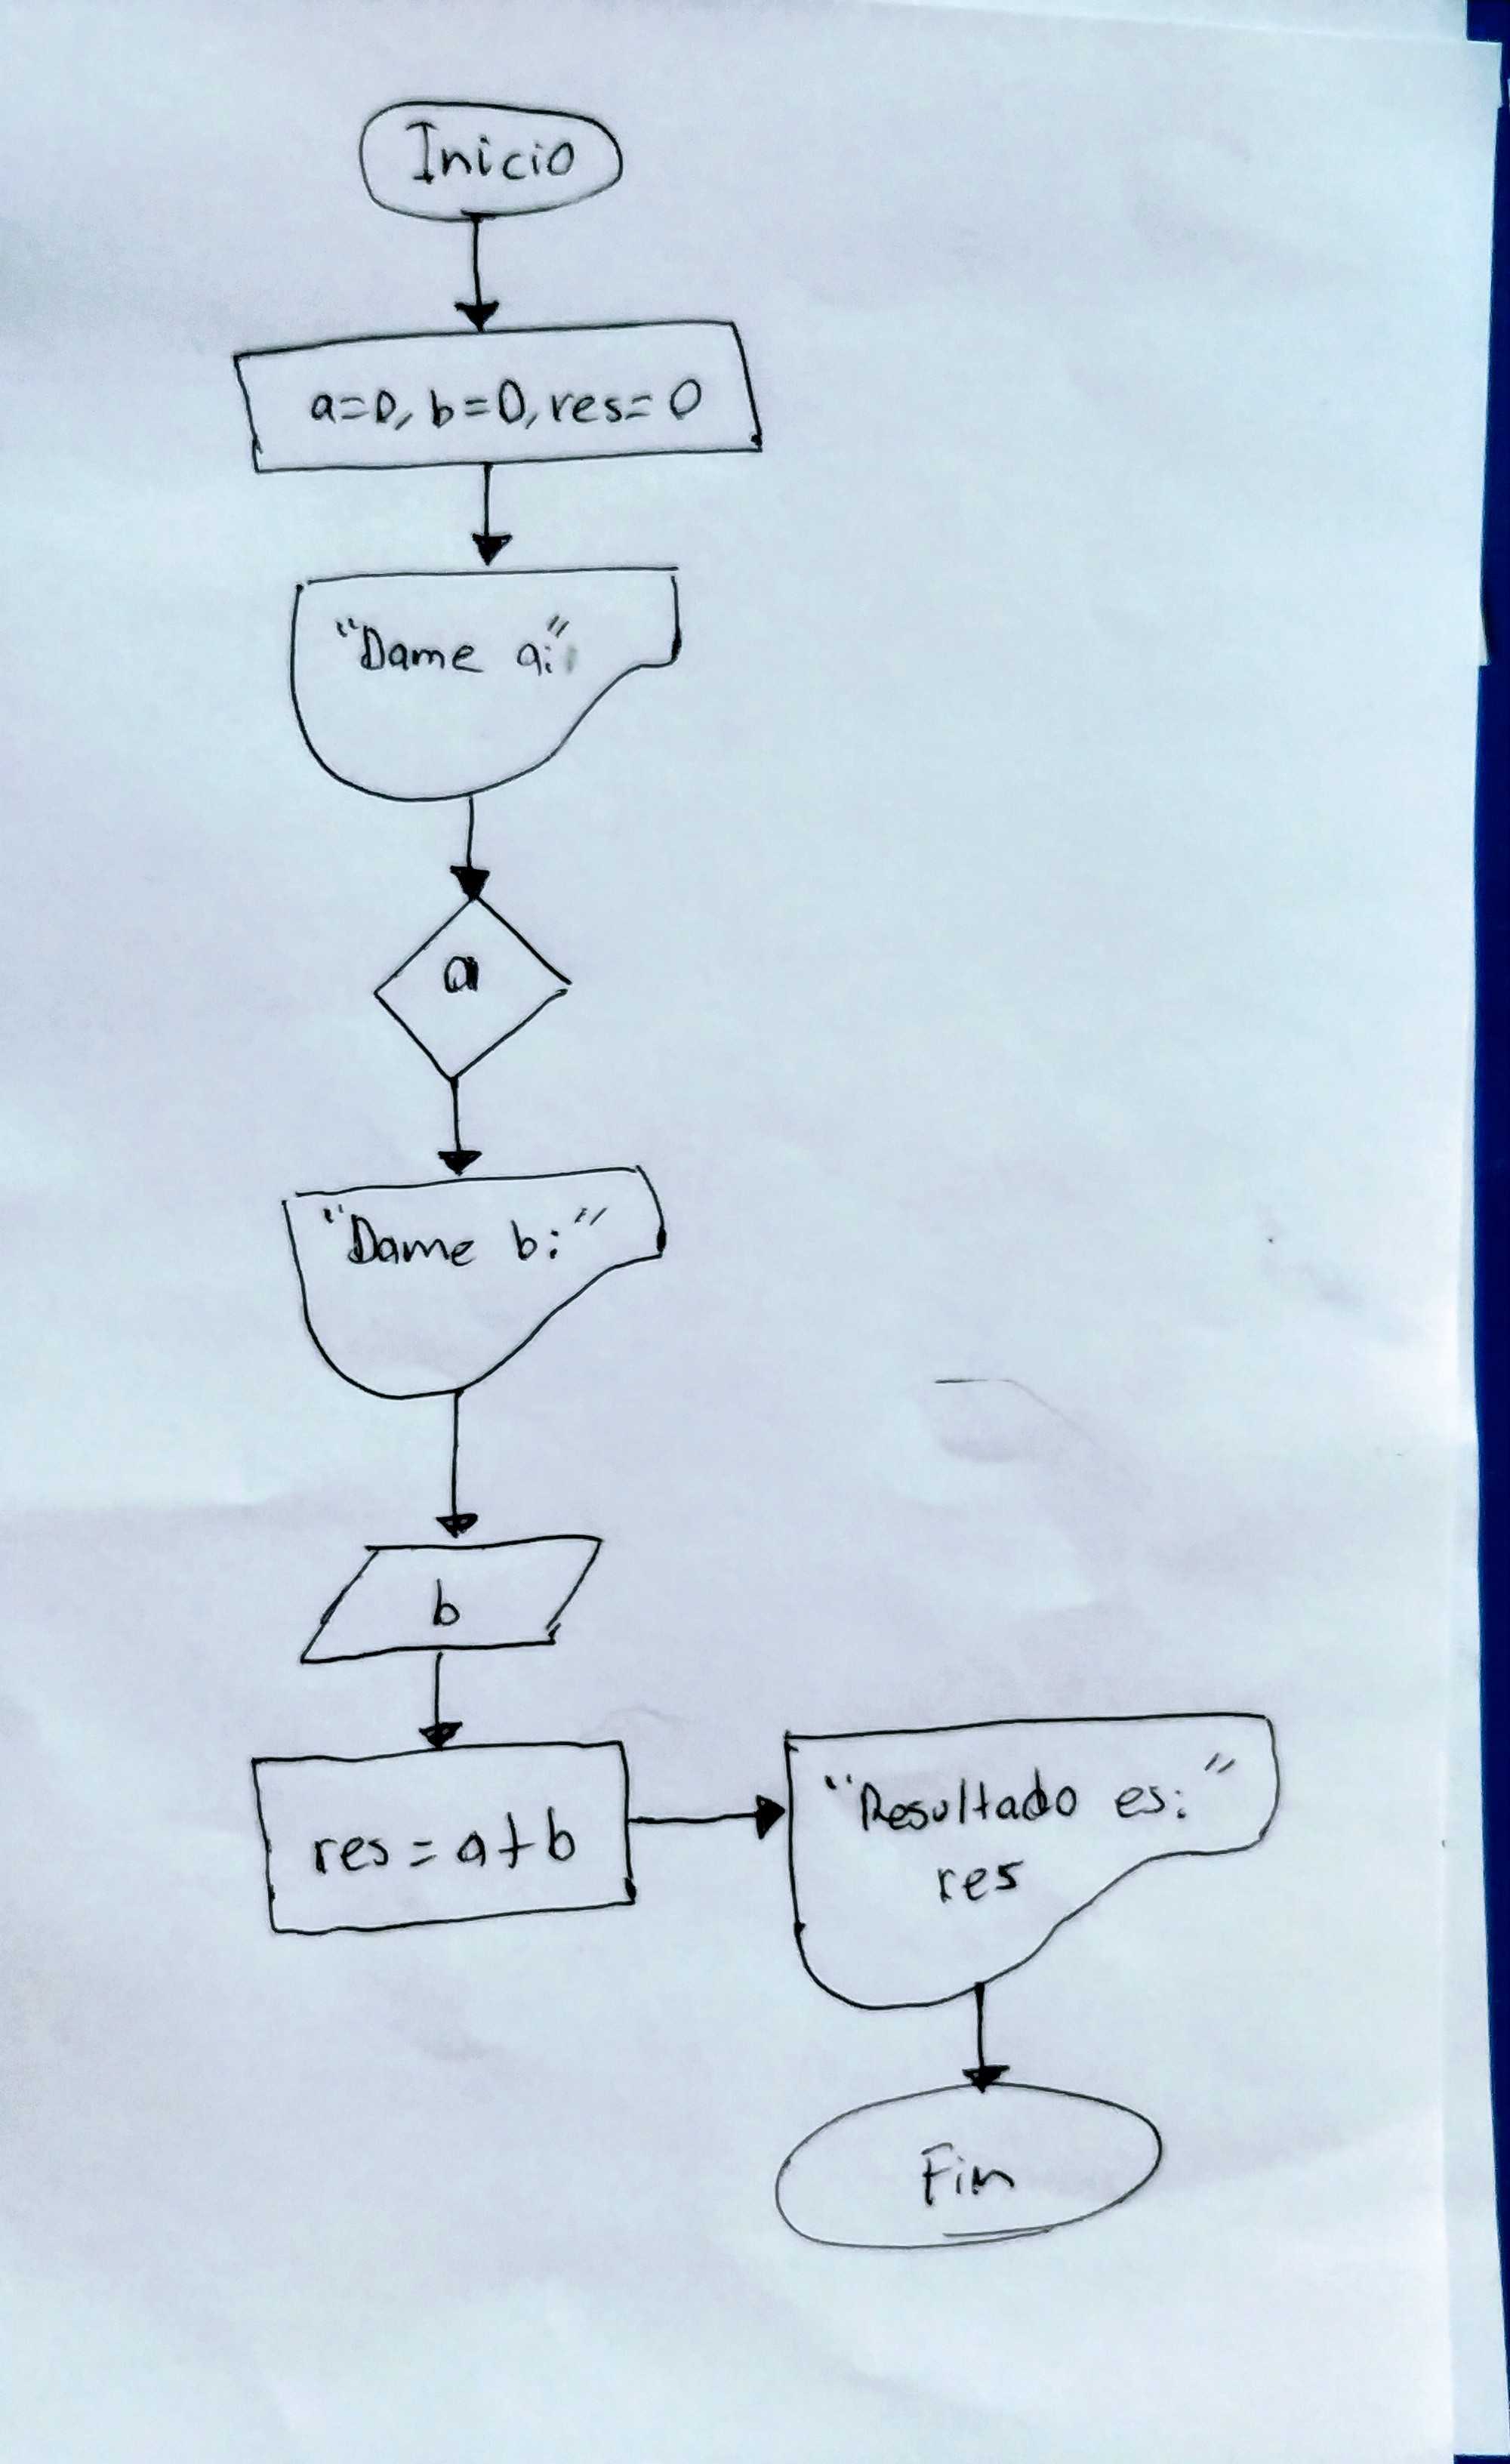 Inicio
a=0, b=0, res=0
"Dame a:"
a
"Dame b:"
b
res = a+b
"Resultado es:"
res
Fin